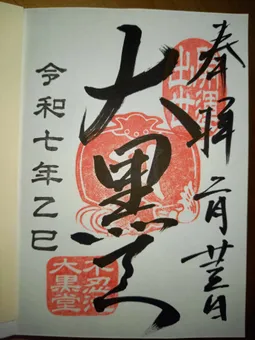 奉拝 二月廿三日
大黒天
令和七年乙巳
不忍池
大黒堂